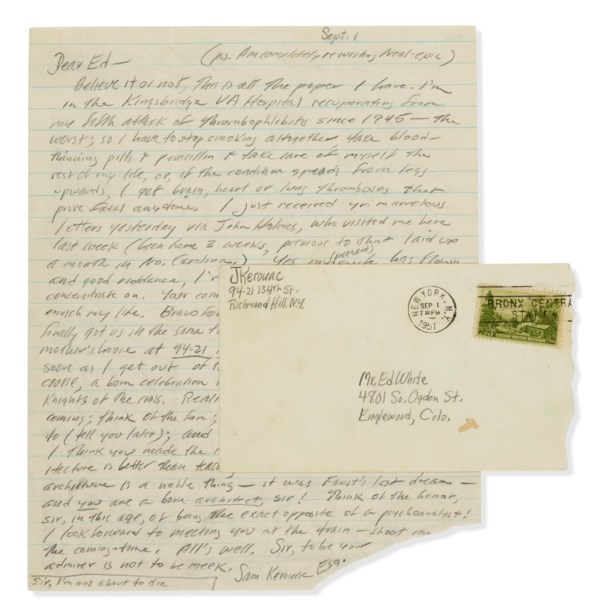 Sept. 1
Dear Ed—
(p.s. Am completely rewriting Neal-epic)
Believe it or not, this is all the paper I have. I'm
in the Kingsbridge VA Hospital recuperating from
my fifth attack of thrombophlebitis since 1945 — the
worst; so I have to stop smoking altogether take blood-
thinning pills & penicillin & take care of myself the
rest of my life, or, if the condition spreads from legs
upwards, I get brain, heart or lung thromboses that
prove fatal anytime. I just received yr. marvelous
letters yesterday via John Holmes, who visited me here
last week (been here 3 weeks, previous to that laid up
a month in No. Carolina.) Yes my
has flown
and good riddance, I'v
concentrate on. Your com
enrich my life. Bravo for
finally got us in the same t
mother's house at 94-21
soon as I get out of t
course, a born celebration
Knights of the
coming; think of the fun;
to (tell you later); and
I think you made the
itecture is better than teac
architecture is a noble thing — it was Faust's last dream —
and you are a born architect, sir! Think of the honor,
sir, in this age, of being the exact opposite of a psychoanalyst!
I look forward to meeting you at the train — shoot me
the coming-time. All's well. Sir, to be your
admirer is not to be meek.
Sam. Kerouac Esq.
Sir, I'm not about to die
JKerouac
94-21 134th St.
Richmond Hill, N.Y.
NEW YORK, N.Y.
SEP 1
7 PM
1951
BRONX CENTRA
STA
Mr. Ed White
4801 So. Ogden St.
Englewood, Colo.